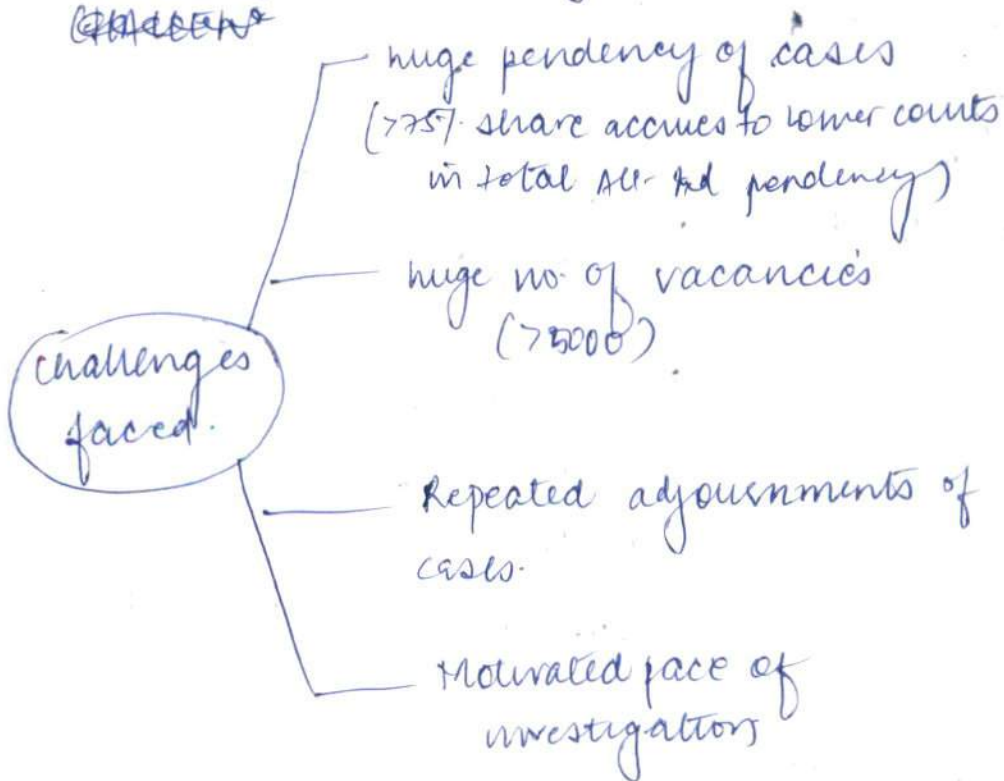 huge pendency of cases
(>75% share accrues to lower courts
in total All-Ind pendency)
huge no. of vacancies
(>5000)
challenges
faced.
Repeated adjournments of
cases.
Motivated pace of
investigation